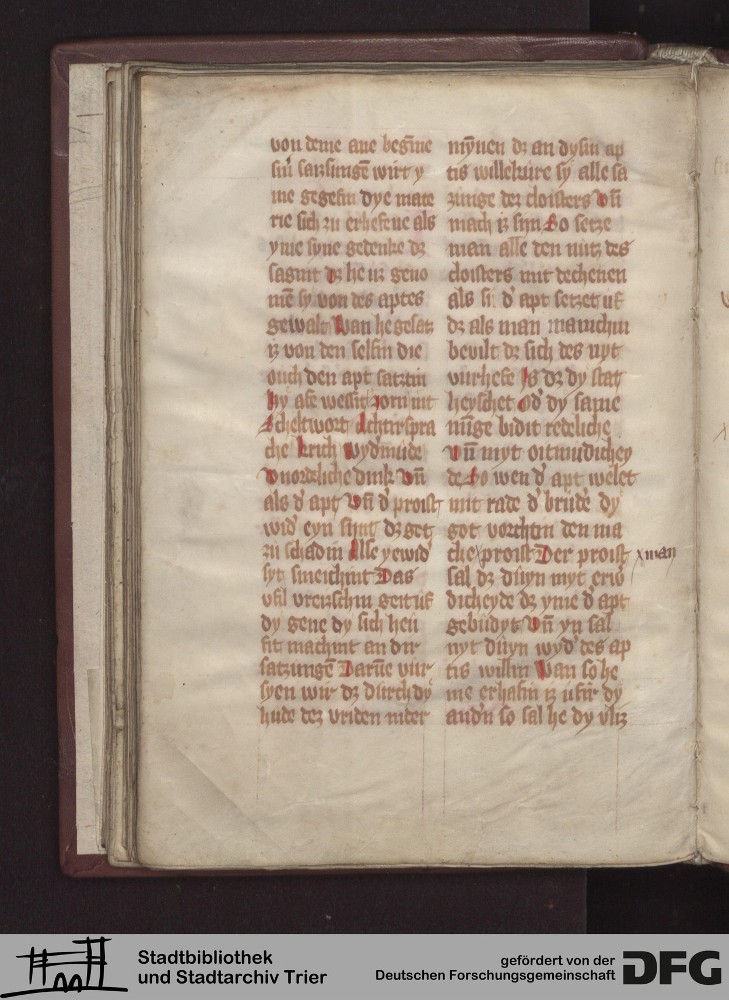 von deme ane begīne
sin̄ satzungē wirt y
me gegebin dye mate
rie sich zu erhebene als
yme syne gedenke dz
sagint dz he uz geno
mē sy von des aptes
gewalt Wan he gesatz
iz von den selbin die
ouch den apt satztin
hy abe wessit zorn nit
Scheltwort Achtirspra
che krich wydmude
vnordeliche dink vn̄
als d' apt Vn̄ d' proist
wid' eyn sint dz get
zu schadin Alse yewid'
syt smeichint Das
vbil vreizschin geit uf
dy gene dy sich heu
bit machint an dir
satzungē Darūe vur
syen wir dz durch dy
hude dez vriden inder
mȳnen dz an dysin ap
tis willekure sy alle sa
zunge dez cloisters vn̄
mach iz sijn So setze
man alle den nutz des
cloisters mit dechenen
als si d' apt setzet uf
dz als man manichin
bevilt dz sich des nyt
virhebe Is dz dy stat
heyschet Od' dy same
nūge bidit redeliche
Vn̄ myt oitmudichey
de So wen d' apt welet
mit rade d' brud'e dy
got vorchtin den ma
che x proist Der proist x man
sal dz duyn myt erw
dicheyde dz yme d' apt
gebudyt Vn̄ yn sal
nyt duyn wyd' des ap
tis willin Wan so he
me erhabin iz ubir dy
and'n so sal he dy vliz
Stadtbibliothek
und Stadtarchiv Trier
gefördert von der
Deutschen Forschungsgemeinschaft
DFG